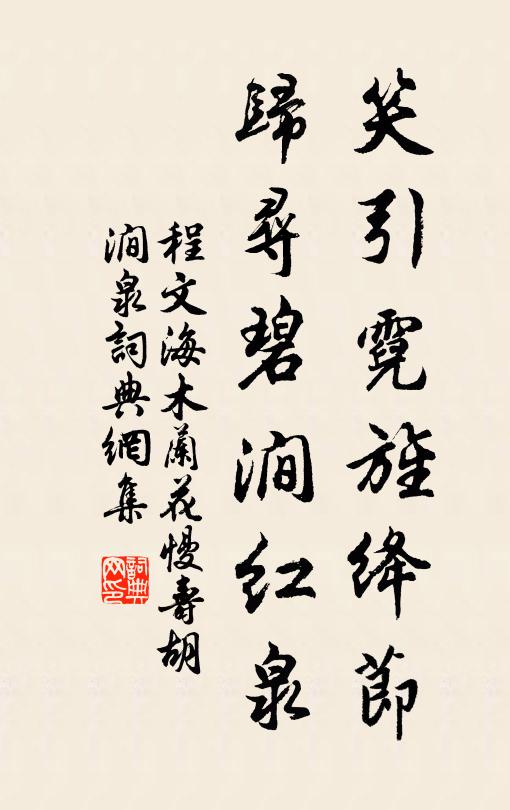 笑引霓旌絳節
歸尋碧澗紅泉
程文海木蘭花慢壽胡
澗泉詞典網集
詞典
网印